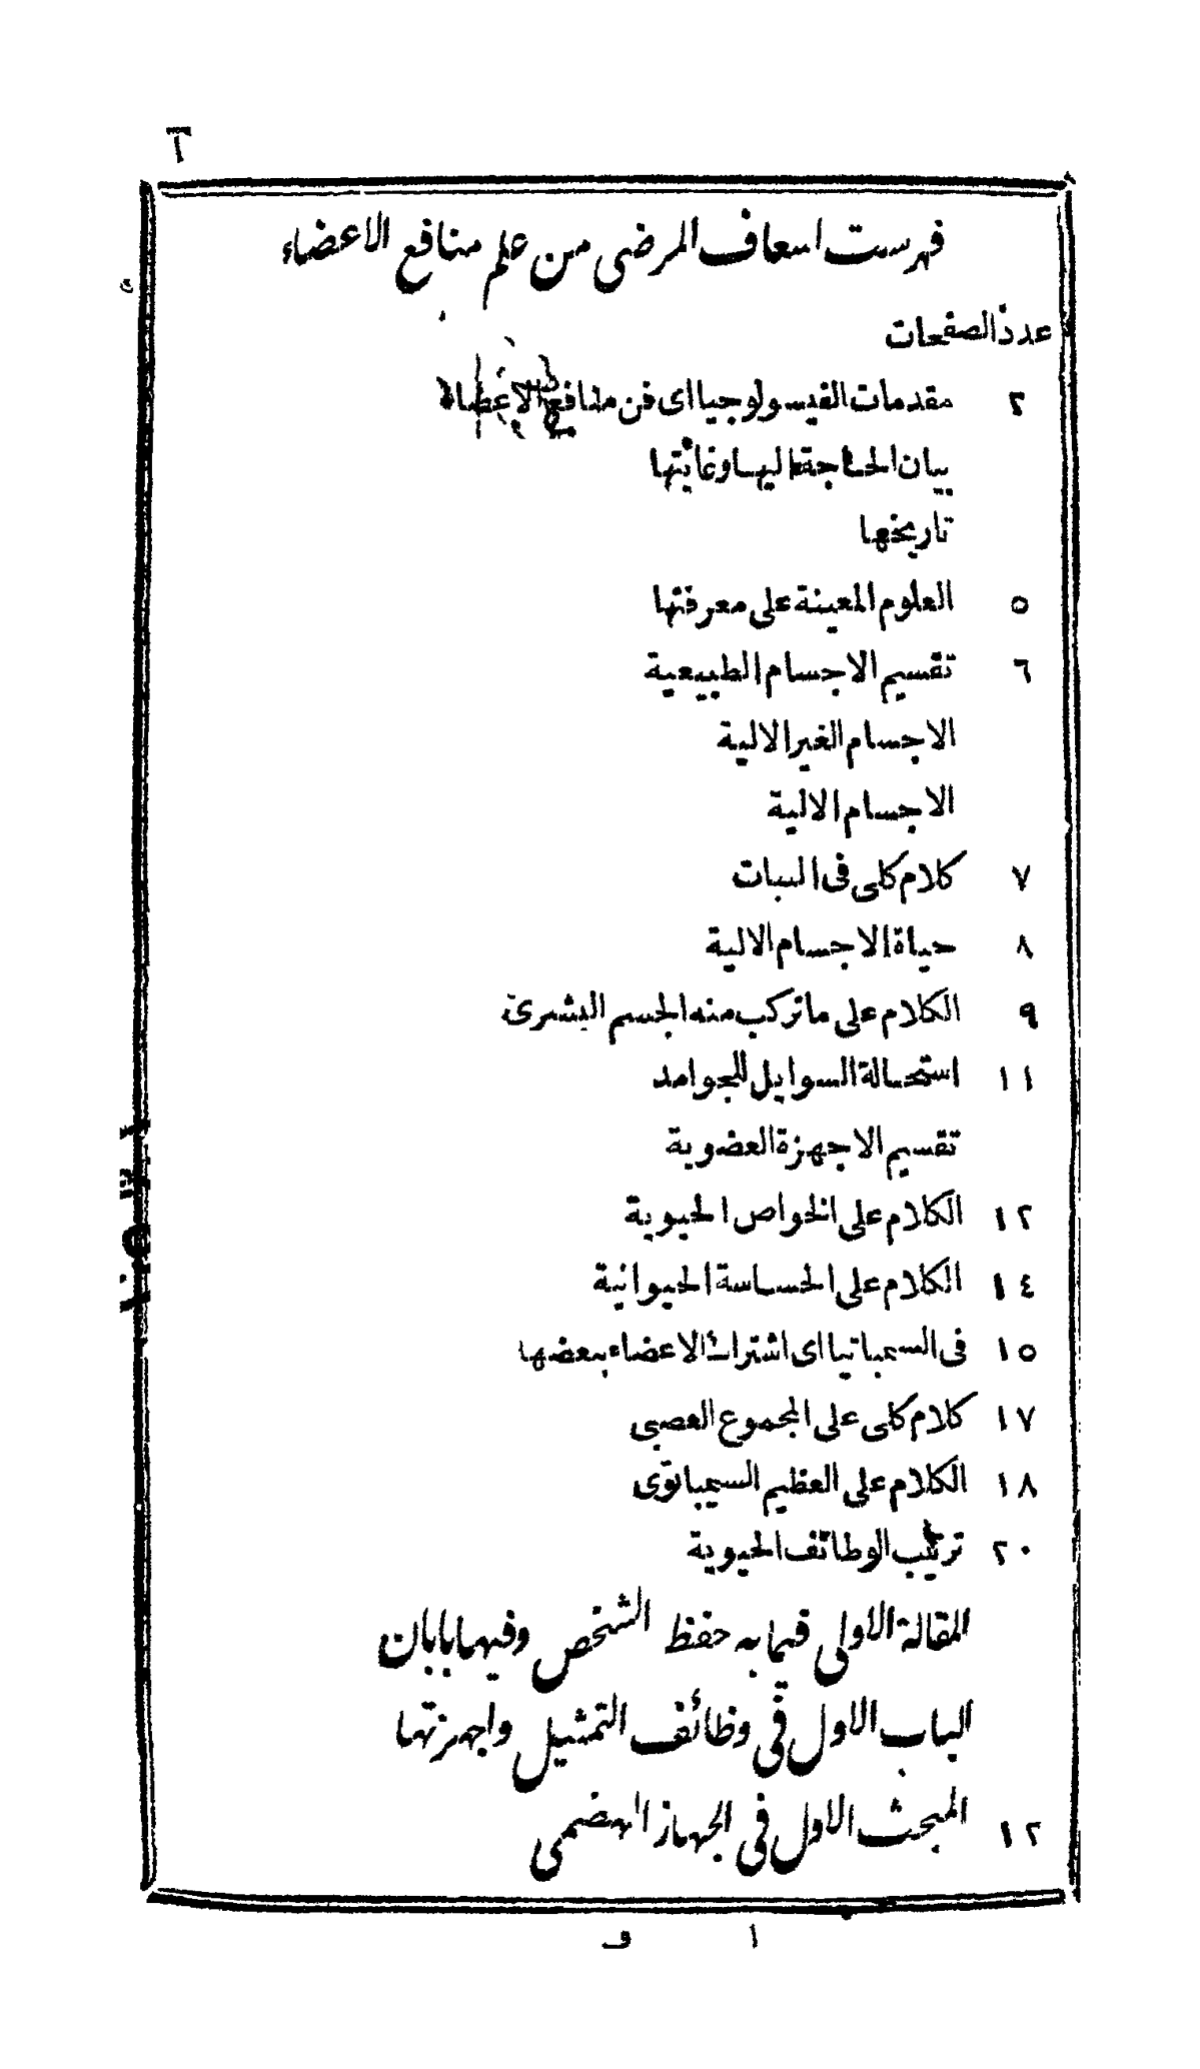 فهرست اسعاف المرضى من علم منافع الاعضاء
عدد الصفحات
٢ مقدمات الفيسولوجيا اى فن منافع الاعضاء
بيان الحاجة اليها وغايتها
تاريخها
٥ العلوم المعينة على معرفتها
٦ تقسيم الاجسام الطبيعية
الاجسام الغير الالية
الاجسام الالية
٧ كلام كلى فى النبات
٨ حياة الاجسام الالية
٩ الكلام على ماتركب منه الجسم البشرى
١١ استحالة السوايل للجوامد
تقسيم الاجهزة العضوية
١٢ الكلام على الخواص الحيوية
١٤ الكلام على الحساسة الحيوانية
١٥ فى السمباتيا اى اشتراك الاعضاء ببعضها
١٧ كلام كلى على المجموع العصبى
١٨ الكلام على العظيم السيمباتوى
٢٠ ترتيب الوظائف الحيوية
المقالة الاولى فيما به حفظ الشخص وفيها بابان
الباب الاول فى وظائف التمثيل واجهزتها
١٢ المبحث الاول فى الجهاز الهضمى
١ ف